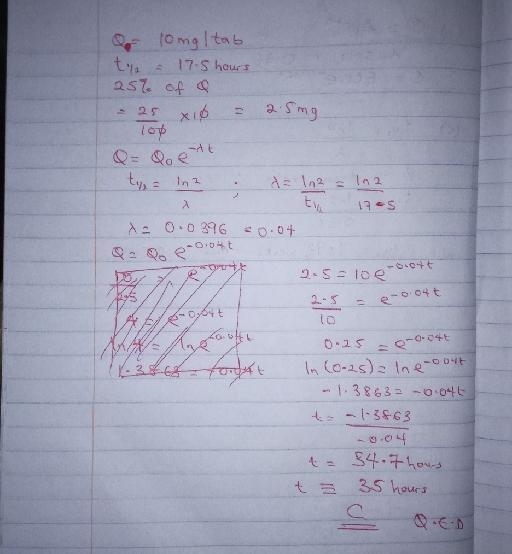 Q = 10mg/tab
t½ = 17.5 hours
25% of Q
= 25/100 x 10 = 2.5mg
Q = Q₀e^-λt
t½ = ln2/λ ; λ = ln2/t½ = ln2/17.5
λ = 0.0396 = 0.04
Q = Q₀ e^-0.04t
2.5 = 10e^-0.04t
2.5/10 = e^-0.04t
0.25 = e^-0.04t
ln(0.25) = lne^-0.04t
-1.3863 = -0.04t
t = -1.3863/-0.04
t = 34.7 hours
t ≡ 35 hours
C Q.E.D